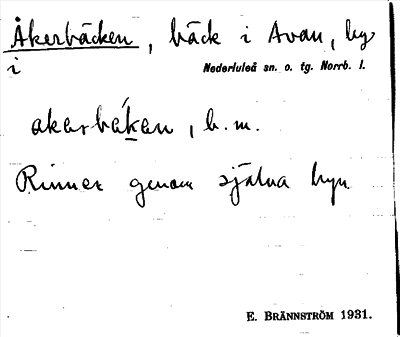 Åkerbäcken, bäck i Avan, by
i Nederluleå sn. o. tg. Norrb. l.
akerbäken, b. m.
Rinner genom själva byn
E. BRÄNNSTRÖM 1931.